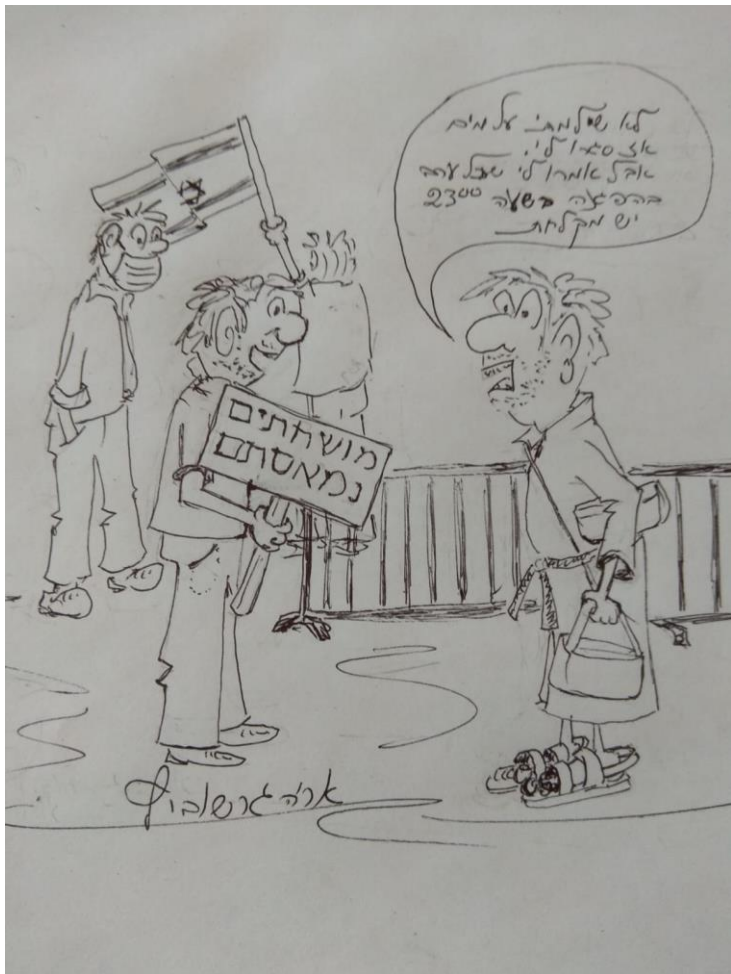 לא שילמתי על מים
אז סגרו לי.
אבל אמרו לי שכל ערב
בהפגנה בשעה 23⁰⁰
יש מקלחת
מושחתים
נמאסתם